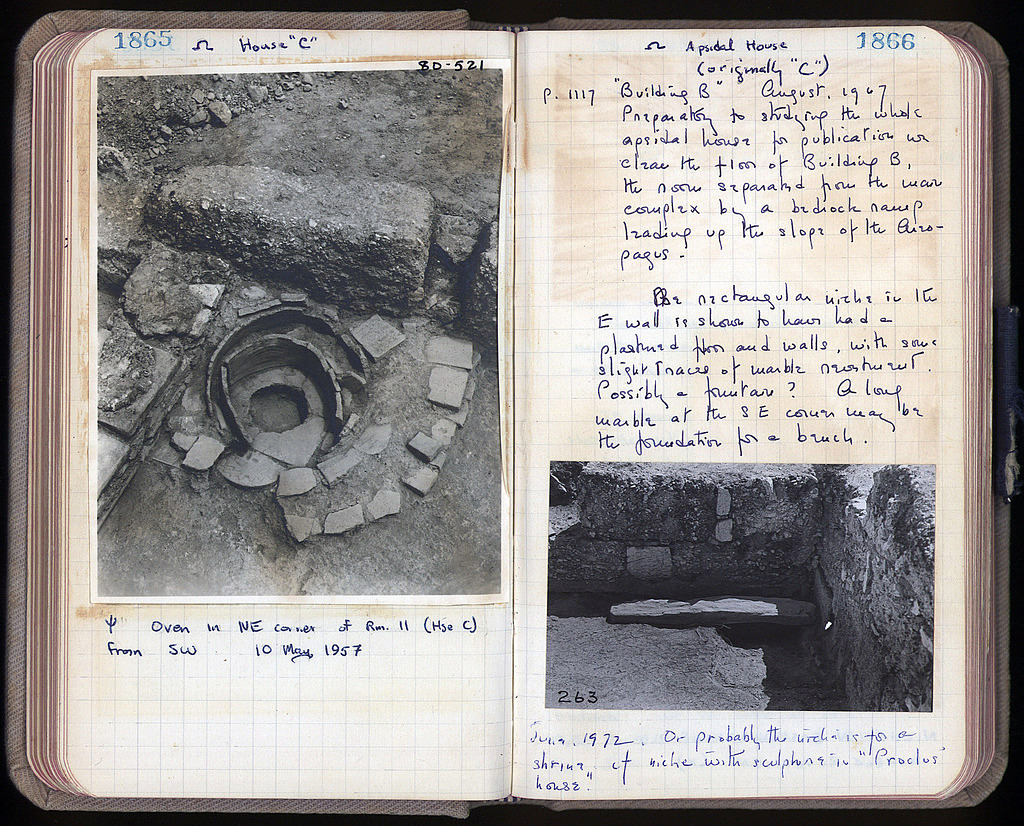 1865 Ω House "C"
80-521
ψ Oven in NE corner of Rm. 11 (Hse C)
from SW 10 May, 1957
Ω Apsidal House 1866
(originally "C")
p. 1117 "Building B" August, 1967
Preparatory to studying the whole
apsidal house for publication we
clean the floor of Building B,
the room separated from the main
complex by a bedrock ramp
leading up the slope of the Areo-
pagus.
The rectangular niche in the
E wall is shown to have had a
plastered floor and walls, with some
slight traces of marble revetment.
Possibly a fountain? A long
marble at the SE corner may be
the foundation for a bench.
263
June, 1972. Or probably the niche is for a
shrine, cf niche with sculpture in "Proclus'
house."